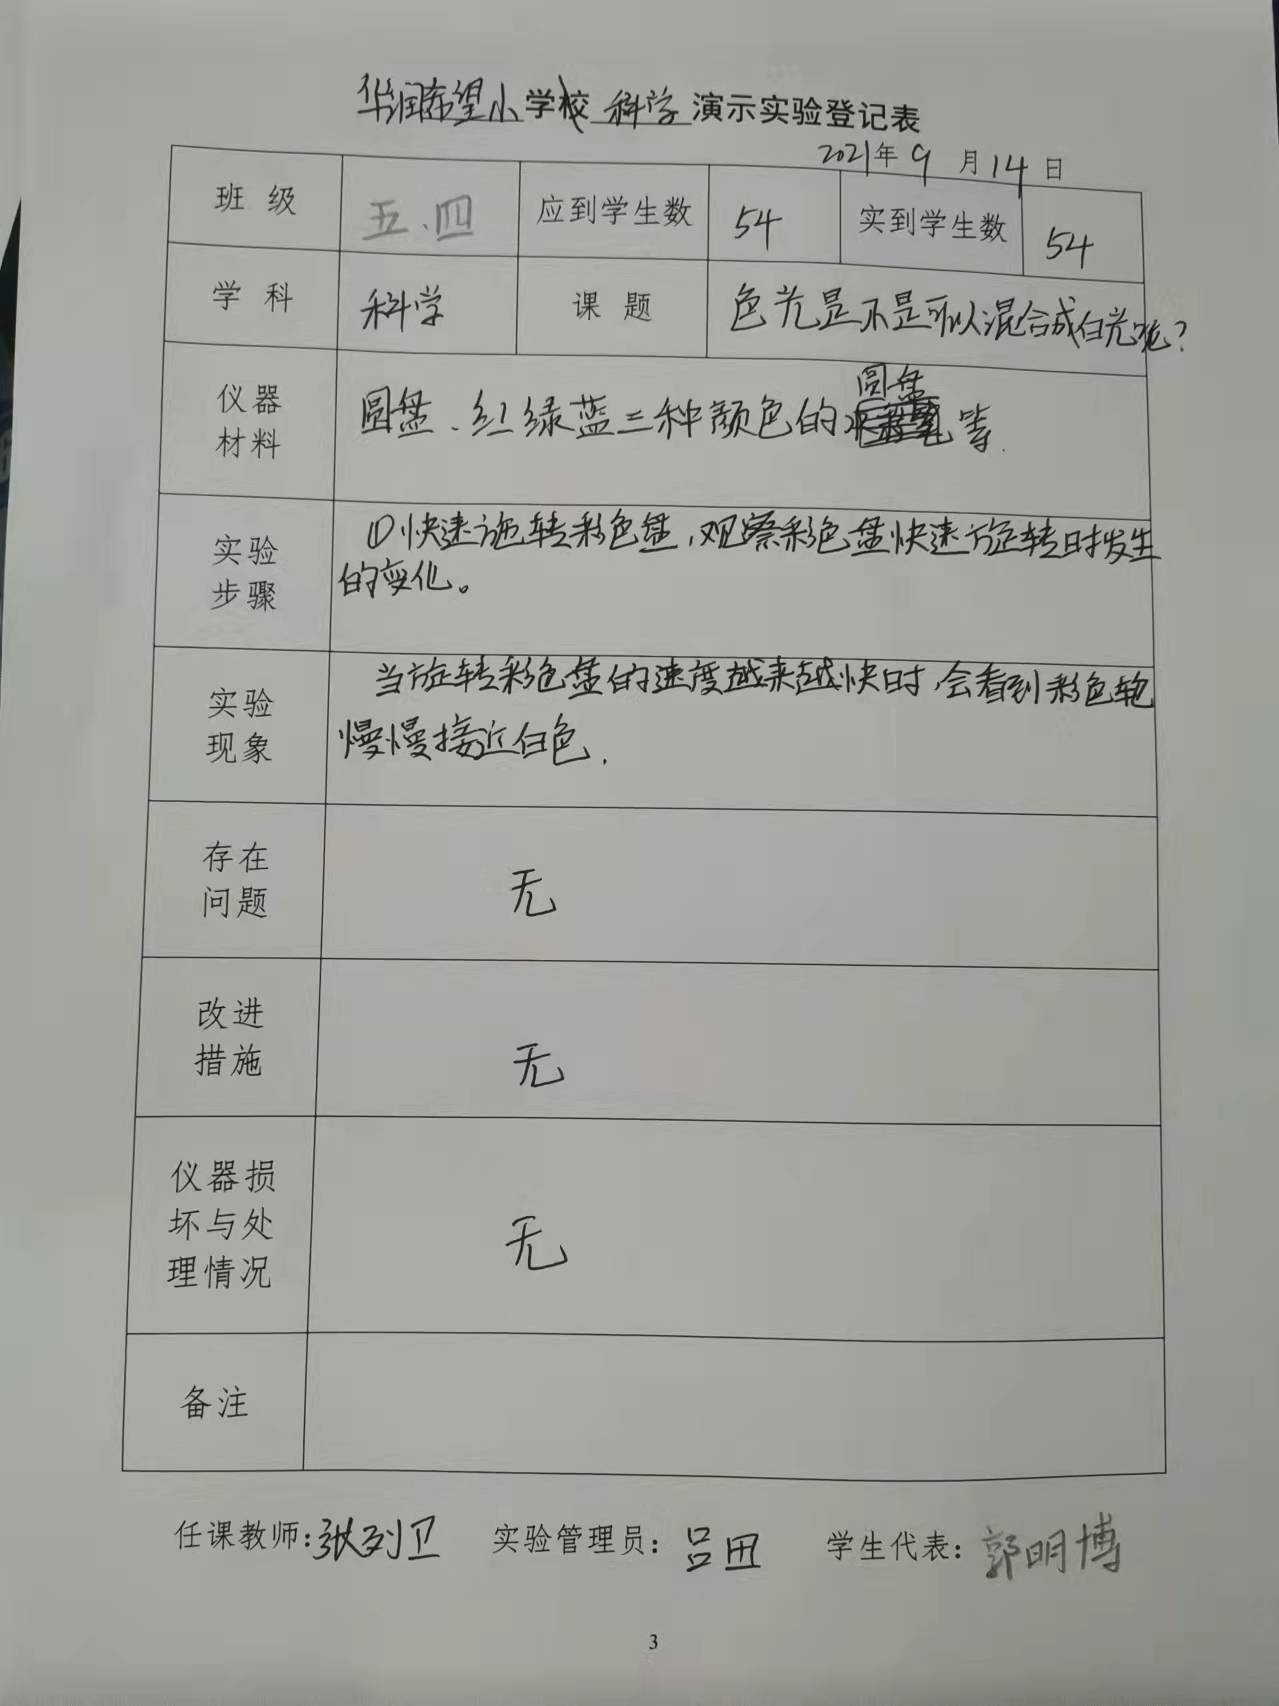 华润希望小学校 科学 演示实验登记表
2021年 9 月 14 日
班 级 五.四 应到学生数 54 实到学生数 54
学 科 科学 课 题 色光是不是可以混合成白光呢?
仪器
材料
圆盘
圆盘、红绿蓝三种颜色的 等.
实验
步骤
①快速旋转彩色盘,观察彩色盘快速旋转时发生
的变化。
实验
现象
当旋转彩色盘的速度越来越快时,会看到彩色轮
慢慢接近白色.
存在
问题
无
改进
措施
无
仪器损
坏与处
理情况
无
备注
任课教师:张列卫 实验管理员:吕田 学生代表:郭明博
3